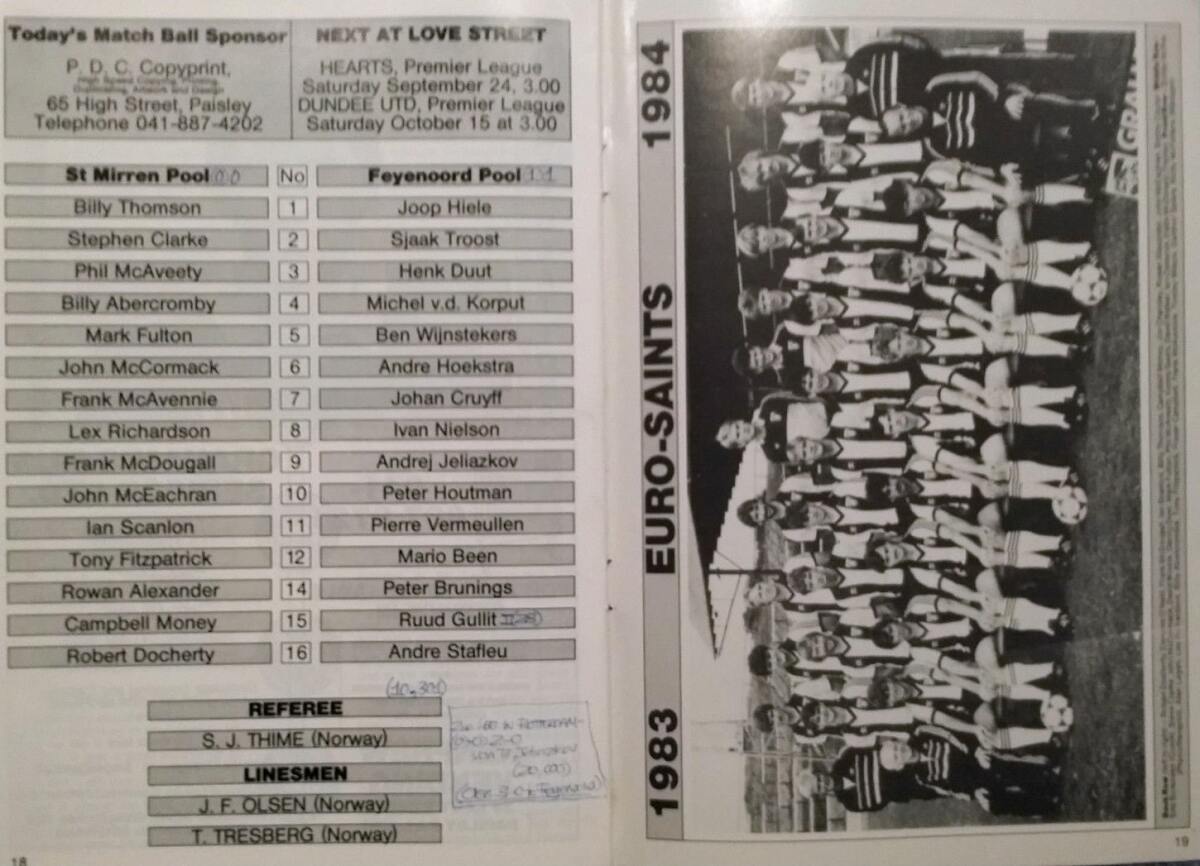 Today's Match Ball Sponsor
P. D. C. Copyprint,
High Speed Copying, Printing,
Duplicating, Artwork and Design
65 High Street, Paisley
Telephone 041-887-4202
NEXT AT LOVE STREET
HEARTS, Premier League
Saturday September 24, 3.00
DUNDEE UTD, Premier League
Saturday October 15 at 3.00
St Mirren Pool No Feyenoord Pool
Billy Thomson 1 Joop Hiele
Stephen Clarke 2 Sjaak Troost
Phil McAveety 3 Henk Duut
Billy Abercromby 4 Michel v.d. Korput
Mark Fulton 5 Ben Wijnstekers
John McCormack 6 Andre Hoekstra
Frank McAvennie 7 Johan Cruyff
Lex Richardson 8 Ivan Nielson
Frank McDougall 9 Andrej Jeliazkov
John McEachran 10 Peter Houtman
Ian Scanlon 11 Pierre Vermeullen
Tony Fitzpatrick 12 Mario Been
Rowan Alexander 14 Peter Brunings
Campbell Money 15 Ruud Gullit
Robert Docherty 16 Andre Stafleu
(10,301)
REFEREE
S. J. THIME (Norway)
LINESMEN
J. F. OLSEN (Norway)
T. TRESBERG (Norway)
IN ROTTERDAM
2-0
(20,000)
18
1983 EURO-SAINTS 1984
GRAHAM
19